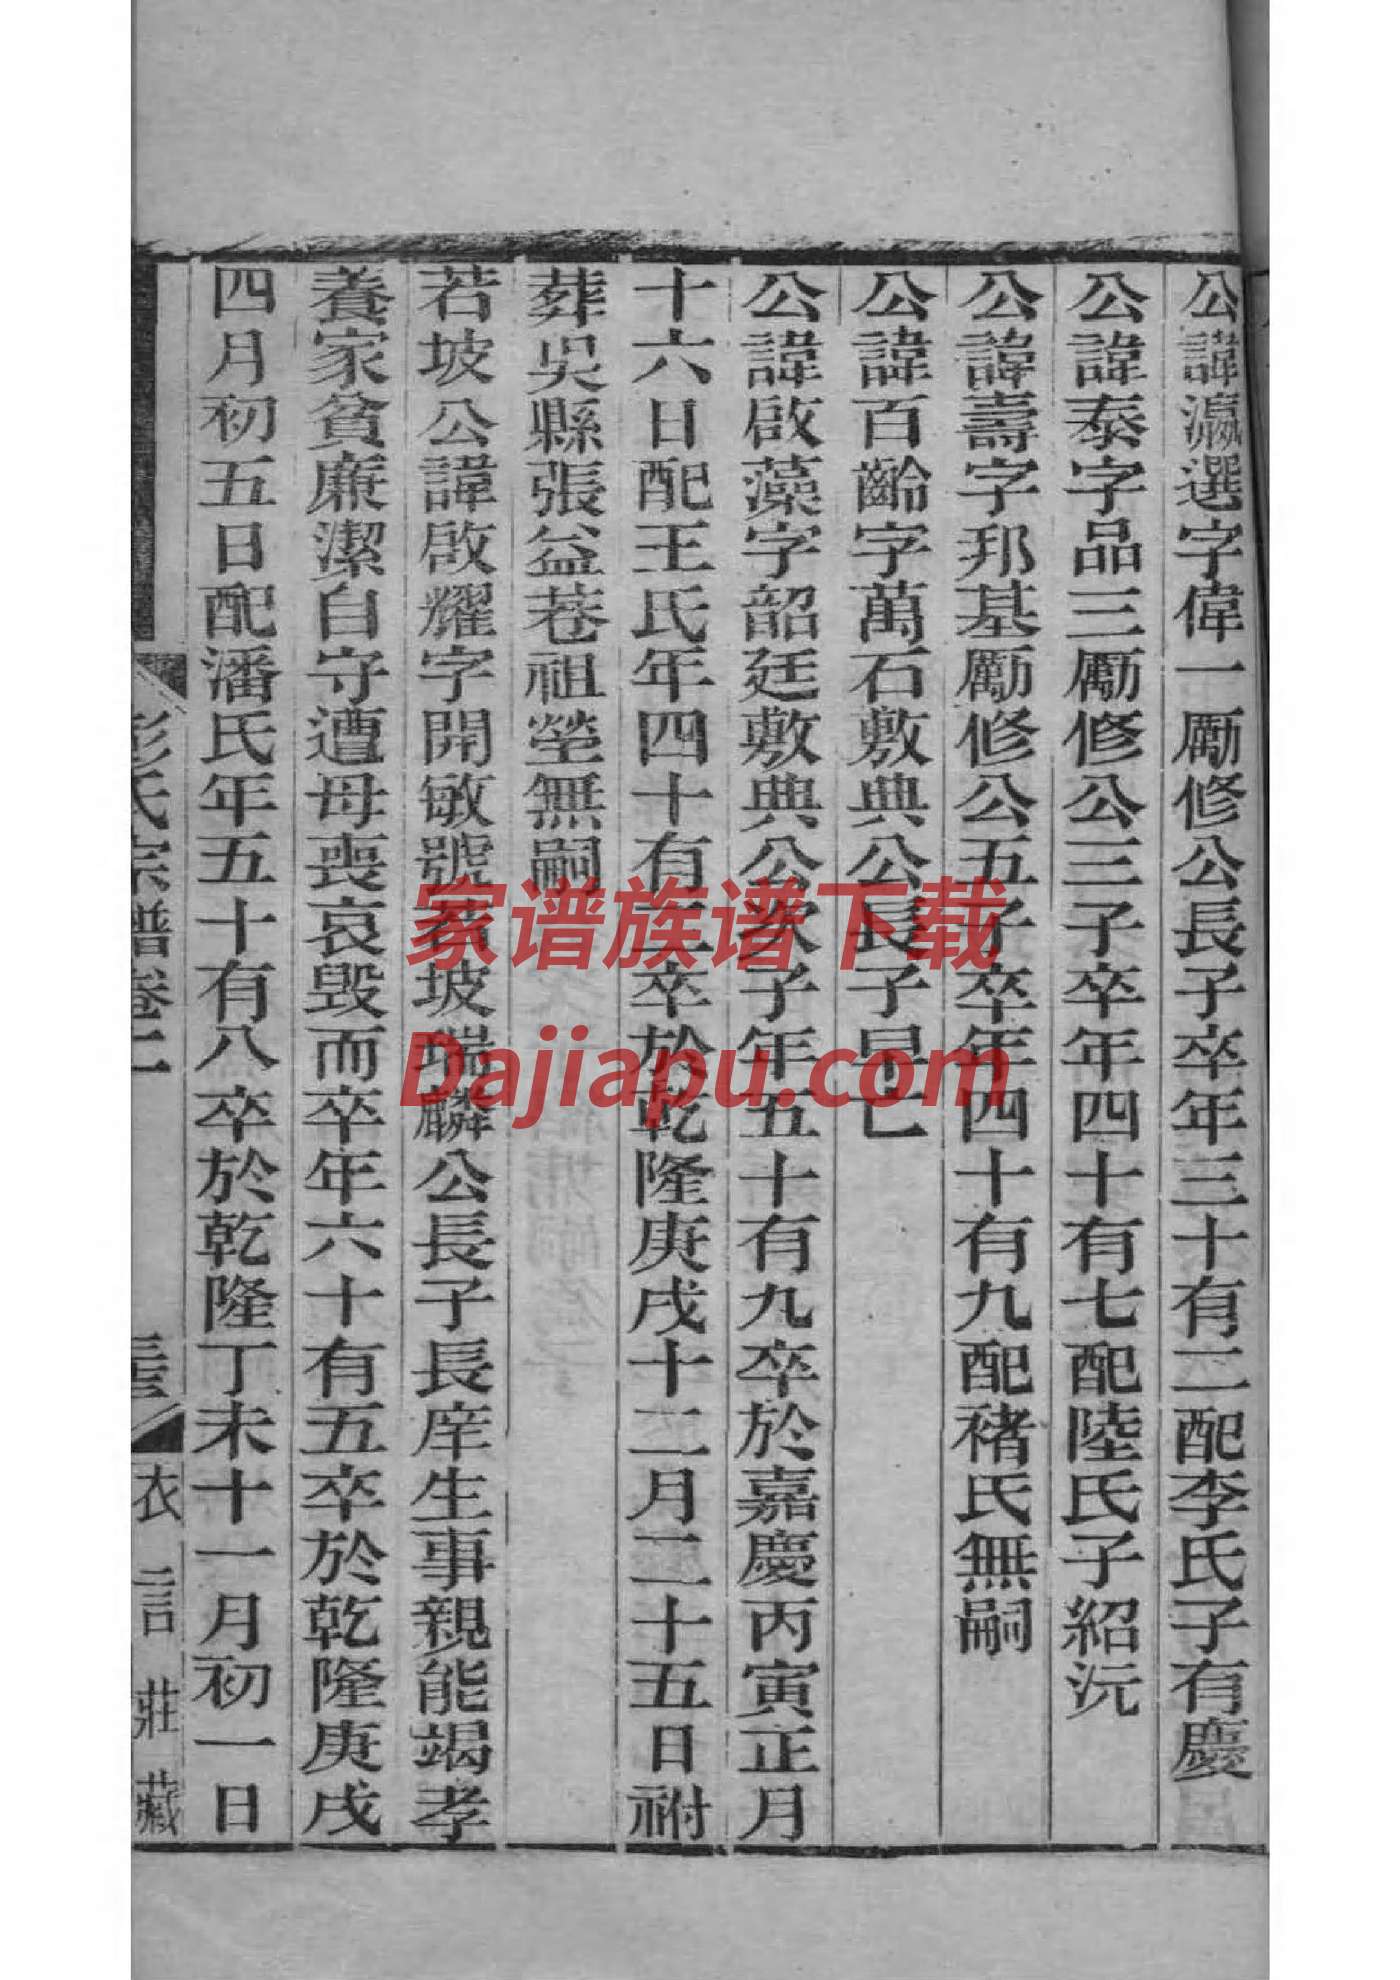 公諱瀛選字偉一勵修公長子卒年三十有二配李氏子有慶
公諱泰字品三勵修公三子卒年四十有七配陸氏子紹沅
公諱壽字邦基勵修公五子卒年四十有九配褚氏無嗣
公諱百齡字萬石敷典公長子早亡
公諱啟藻字韶廷敷典公次子年五十有九卒於嘉慶丙寅正月
十六日配王氏年四十有二卒於乾隆庚戌十二月二十五日祔
葬吳縣張盆巷祖塋無嗣
若坡公諱啟耀字開敏號若坡瑞麟公長子長庠生事親能竭孝
養家貧廉潔自守遭母喪哀毀而卒年六十有五卒於乾隆庚戌
四月初五日配潘氏年五十有八卒於乾隆丁未十一月初一日
彭氏宗譜卷二
衣言莊藏
家谱族谱下载
Dajiapu.com